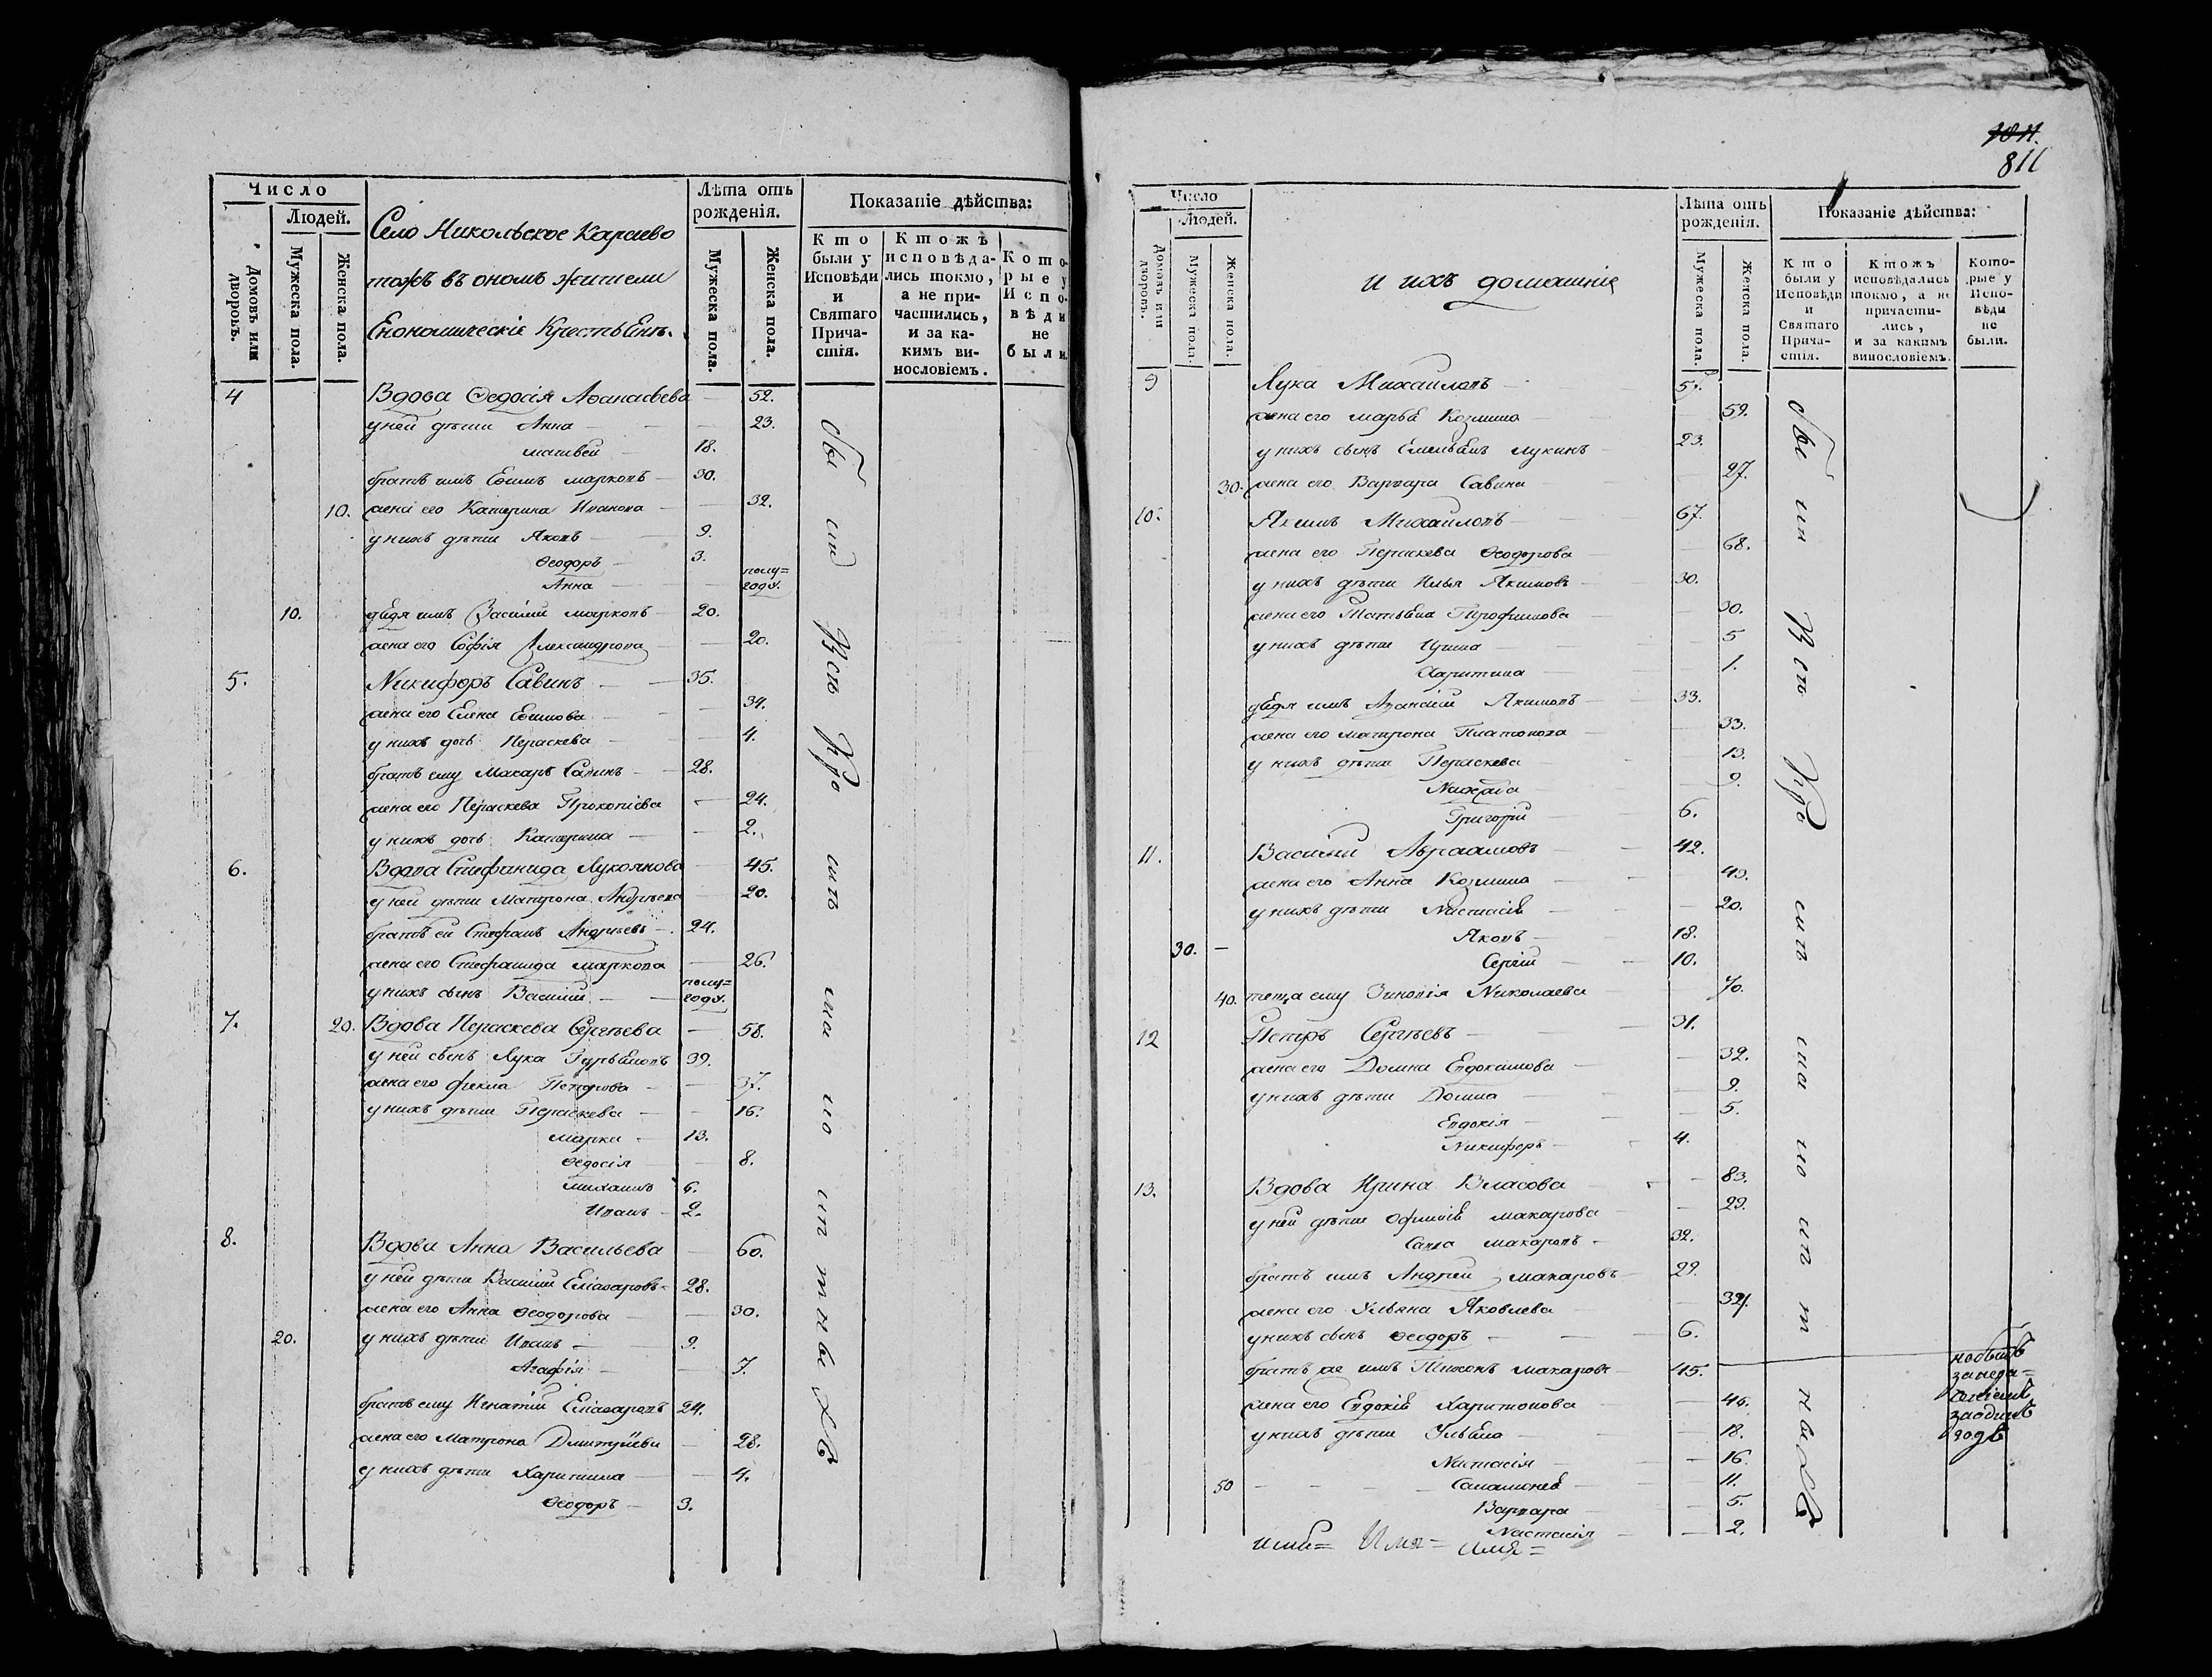 Число
Людей.
Домовъ или дворовъ.
Мужеска пола.
Женска пола.
Село Никольское Караево
тожъ въ ономъ жители
Економическіе Крестьяне.
Лѣта отъ рожденія.
Мужеска пола.
Женска пола.
Показаніе дѣйства:
Кто были у Исповѣди и Святаго Причастія.
Ктожъ исповѣдались токмо, а не причастились, и за какимъ винословіемъ.
Которые у Исповѣди не были.
4 Вдова Ѳедосія Аѳанасьева 52.
у ней дѣти Анна 23.
Матвей 18.
братъ имъ Ефимъ Марковъ 30.
10. жена его Катерина Иванова 32.
у нихъ дѣти Яковъ 9.
Ѳеодоръ 3.
Анна полугоду.
10. дядя имъ Василій Марковъ 20.
жена его Софія Александрова 20.
5. Никифоръ Савинъ 35.
жена его Елена Ефимова 34.
у нихъ дочь Параскева 4.
братъ ему Макаръ Савинъ 28.
жена его Параскева Прокопіева 24.
у нихъ дочь Катерина 2.
6. Вдова Стефанида Лукоянова 45.
у ней дѣти Матрона Андреева 20.
братъ ей Стефанъ Андреевъ 24.
жена его Стефанида Маркова 26.
у нихъ сынъ Василій полугоду.
7. 20. Вдова Параскева Сергѣева 58.
у ней сынъ Лука Гурьяновъ 39.
жена его Фекла Петрова 37.
у нихъ дѣти Параскева 16.
Марка 13.
Ѳедосія 8.
Михаилъ 6.
Иванъ 2.
8. Вдова Анна Васильева 60.
у ней дѣти Василій Еліазаровъ 28.
жена его Анна Ѳеодорова 30.
20. у нихъ дѣти Иванъ 9.
Агафія 7.
братъ ему Игнатій Еліазаровъ 24.
жена его Матрона Дмитріева 28.
у нихъ дѣти Харитина 4.
Ѳеодоръ 3.
1011.
811
Число
Людей.
Домовъ или дворовъ.
Мужеска пола.
Женска пола.
и ихъ домашніе
Лѣта отъ рожденія.
Мужеска пола.
Женска пола.
Показаніе дѣйства:
Кто были у Исповѣди и Святаго Причастія.
Ктожъ исповѣдались токмо, а не причастились, и за какимъ винословіемъ.
Которые у Исповѣди не были.
9 Лука Михаиловъ
жена его Марья Козмина 59.
у нихъ сынъ Емельянъ Лукинъ 23.
30. жена его Варвара Савина 27.
10. Якимъ Михаиловъ 67.
жена его Параскева Ѳеодорова 68.
у нихъ дѣти Илья Якимовъ 30.
жена его Татьяна Трофимова 30.
у нихъ дѣти Ирина 5
Харитина 1.
дядя имъ Аѳанасій Якимовъ 33.
жена его Матрона Платонова 33.
у нихъ дѣти Параскева 13.
9.
Григорій 6.
11. Василій Авраамовъ 42.
жена его Анна Козмина 40.
у нихъ дѣти Настасія 20.
30. Яковъ 18.
Сергій 10.
40. теща ему Зиновія Николаева 70.
12 Петръ Сергѣевъ 31.
жена его Домна Евдокимова 32.
у нихъ дѣти Домна 9.
Евдокія 5.
Никифоръ 4.
13. Вдова Ирина Власова 83.
у ней дѣти Офимія Макарова 29.
Савва Макаровъ 32.
братъ имъ Андрей Макаровъ 29.
жена его Ульяна Яковлева
у нихъ сынъ Ѳеодоръ 6.
братъ же имъ Тихонъ Макаровъ 45.
жена его Евдокія Харитонова
у нихъ дѣти Ульяна 18.
Настасія 16.
50 Саламонея 11.
Варвара 5.
Настасія 2.